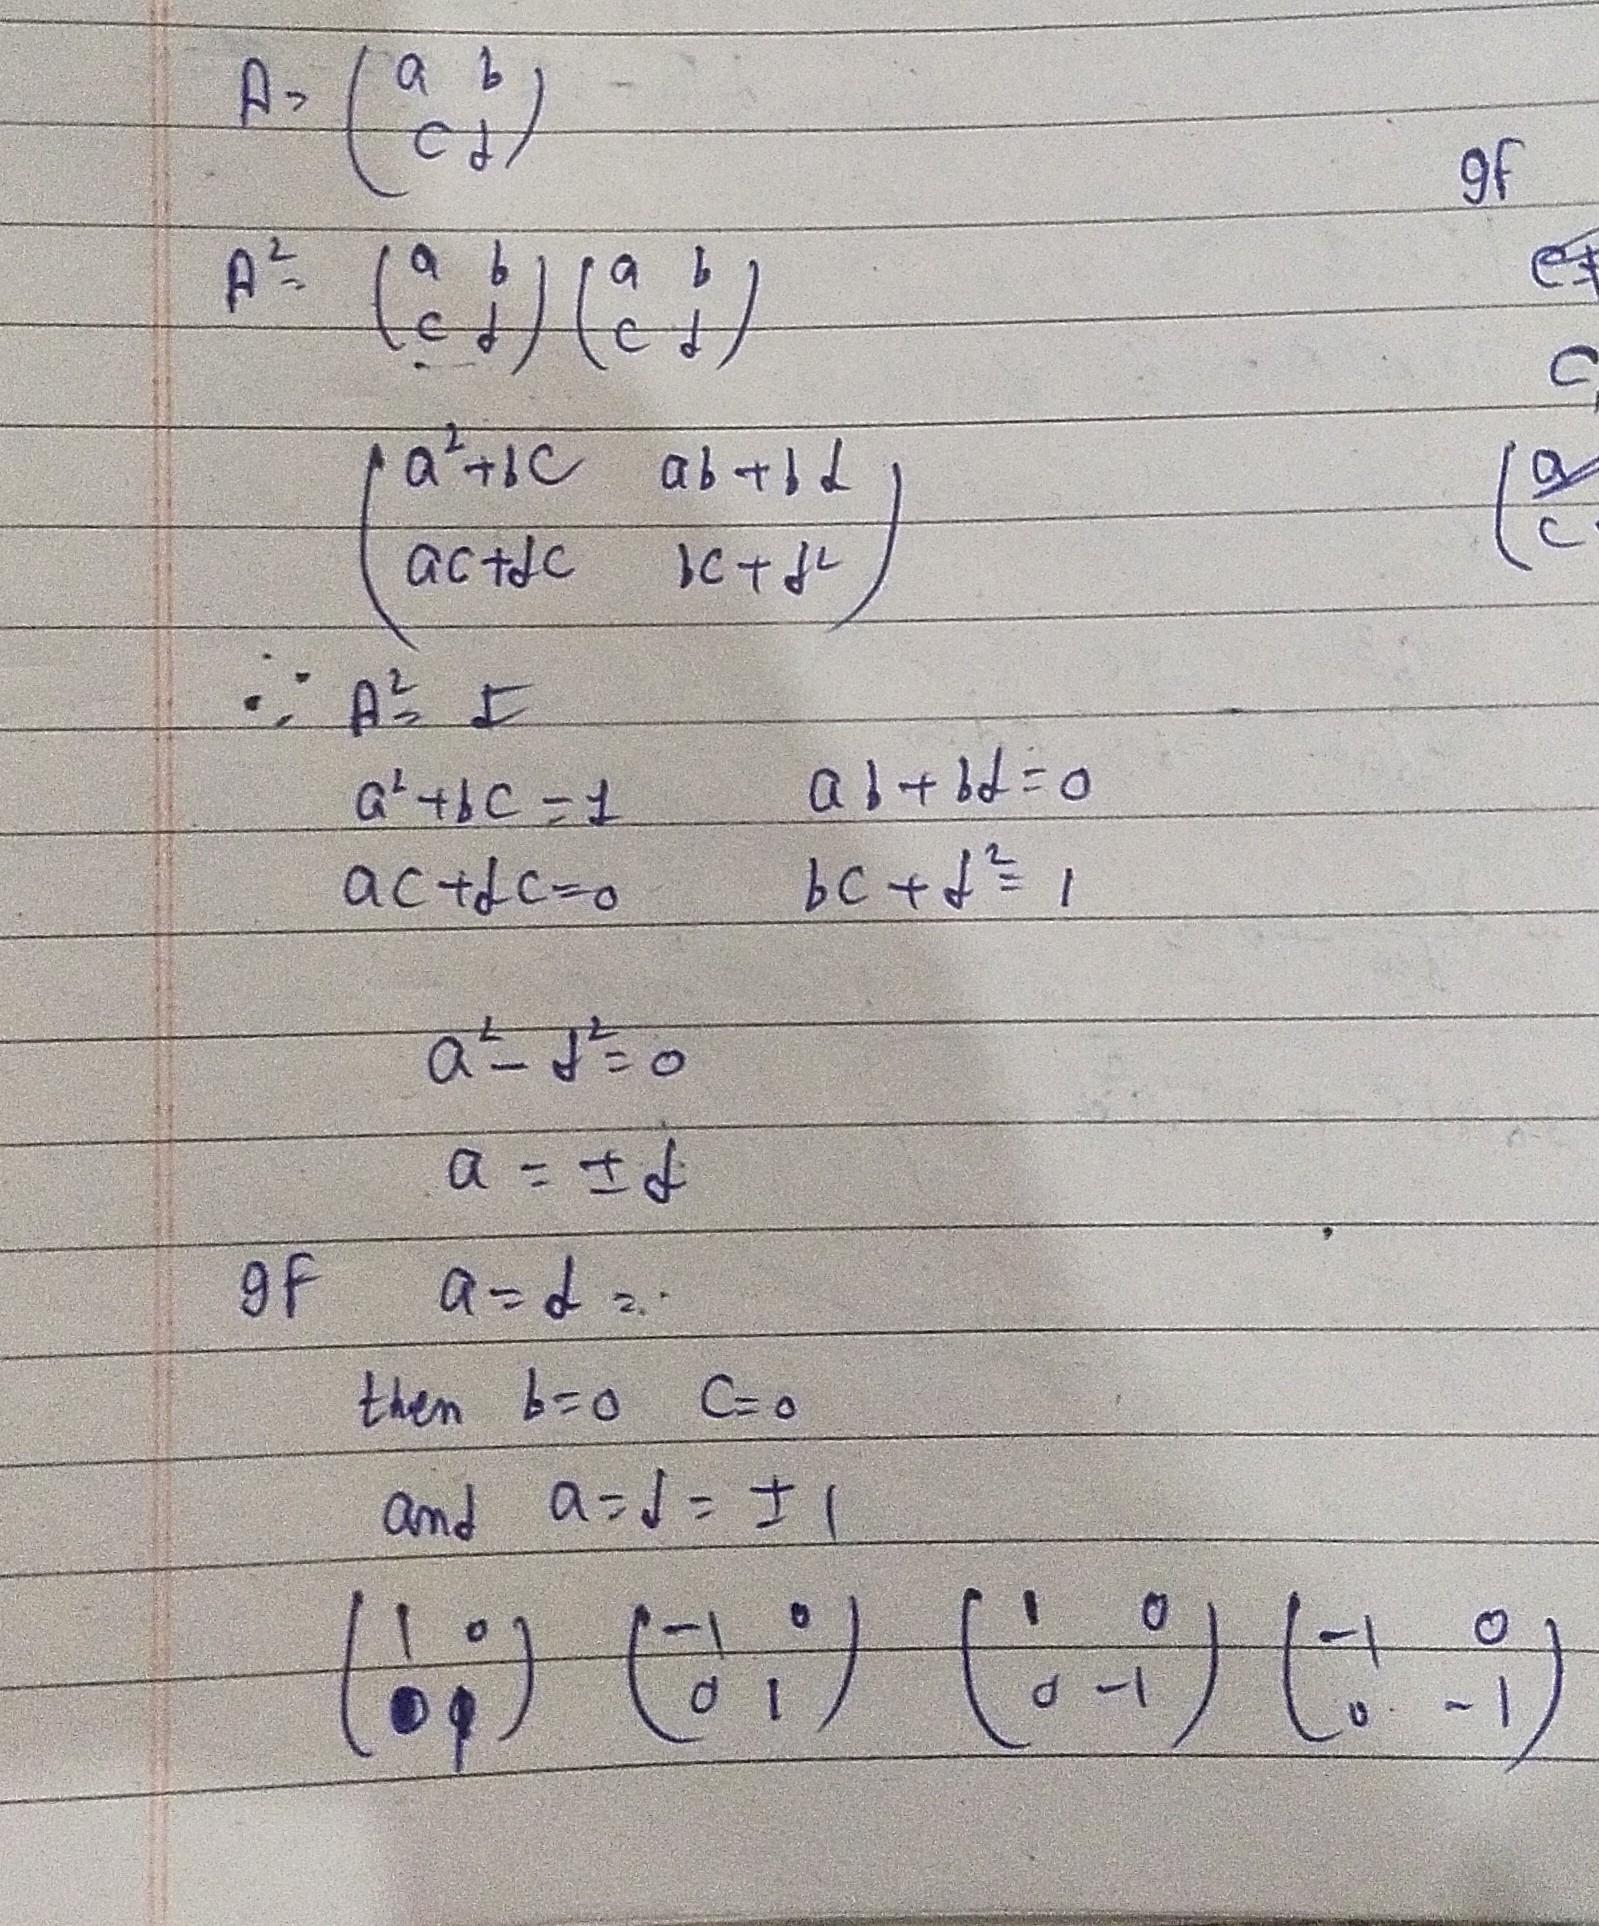 A = ( a b
c d )
A² = ( a b
c d ) ( a b
c d )
( a²+bc ab+bd
ac+dc bc+d² )
∵ A² = I
a²+bc=1 ab+bd=0
ac+dc=0 bc+d²=1
a²-d²=0
a = ±d
If a=d=
then b=0 c=0
and a=d=±1
( 1 0
0 1 ) ( -1 0
0 1 ) ( 1 0
0 -1 ) ( -1 0
0 -1 )
If
c
( a
c